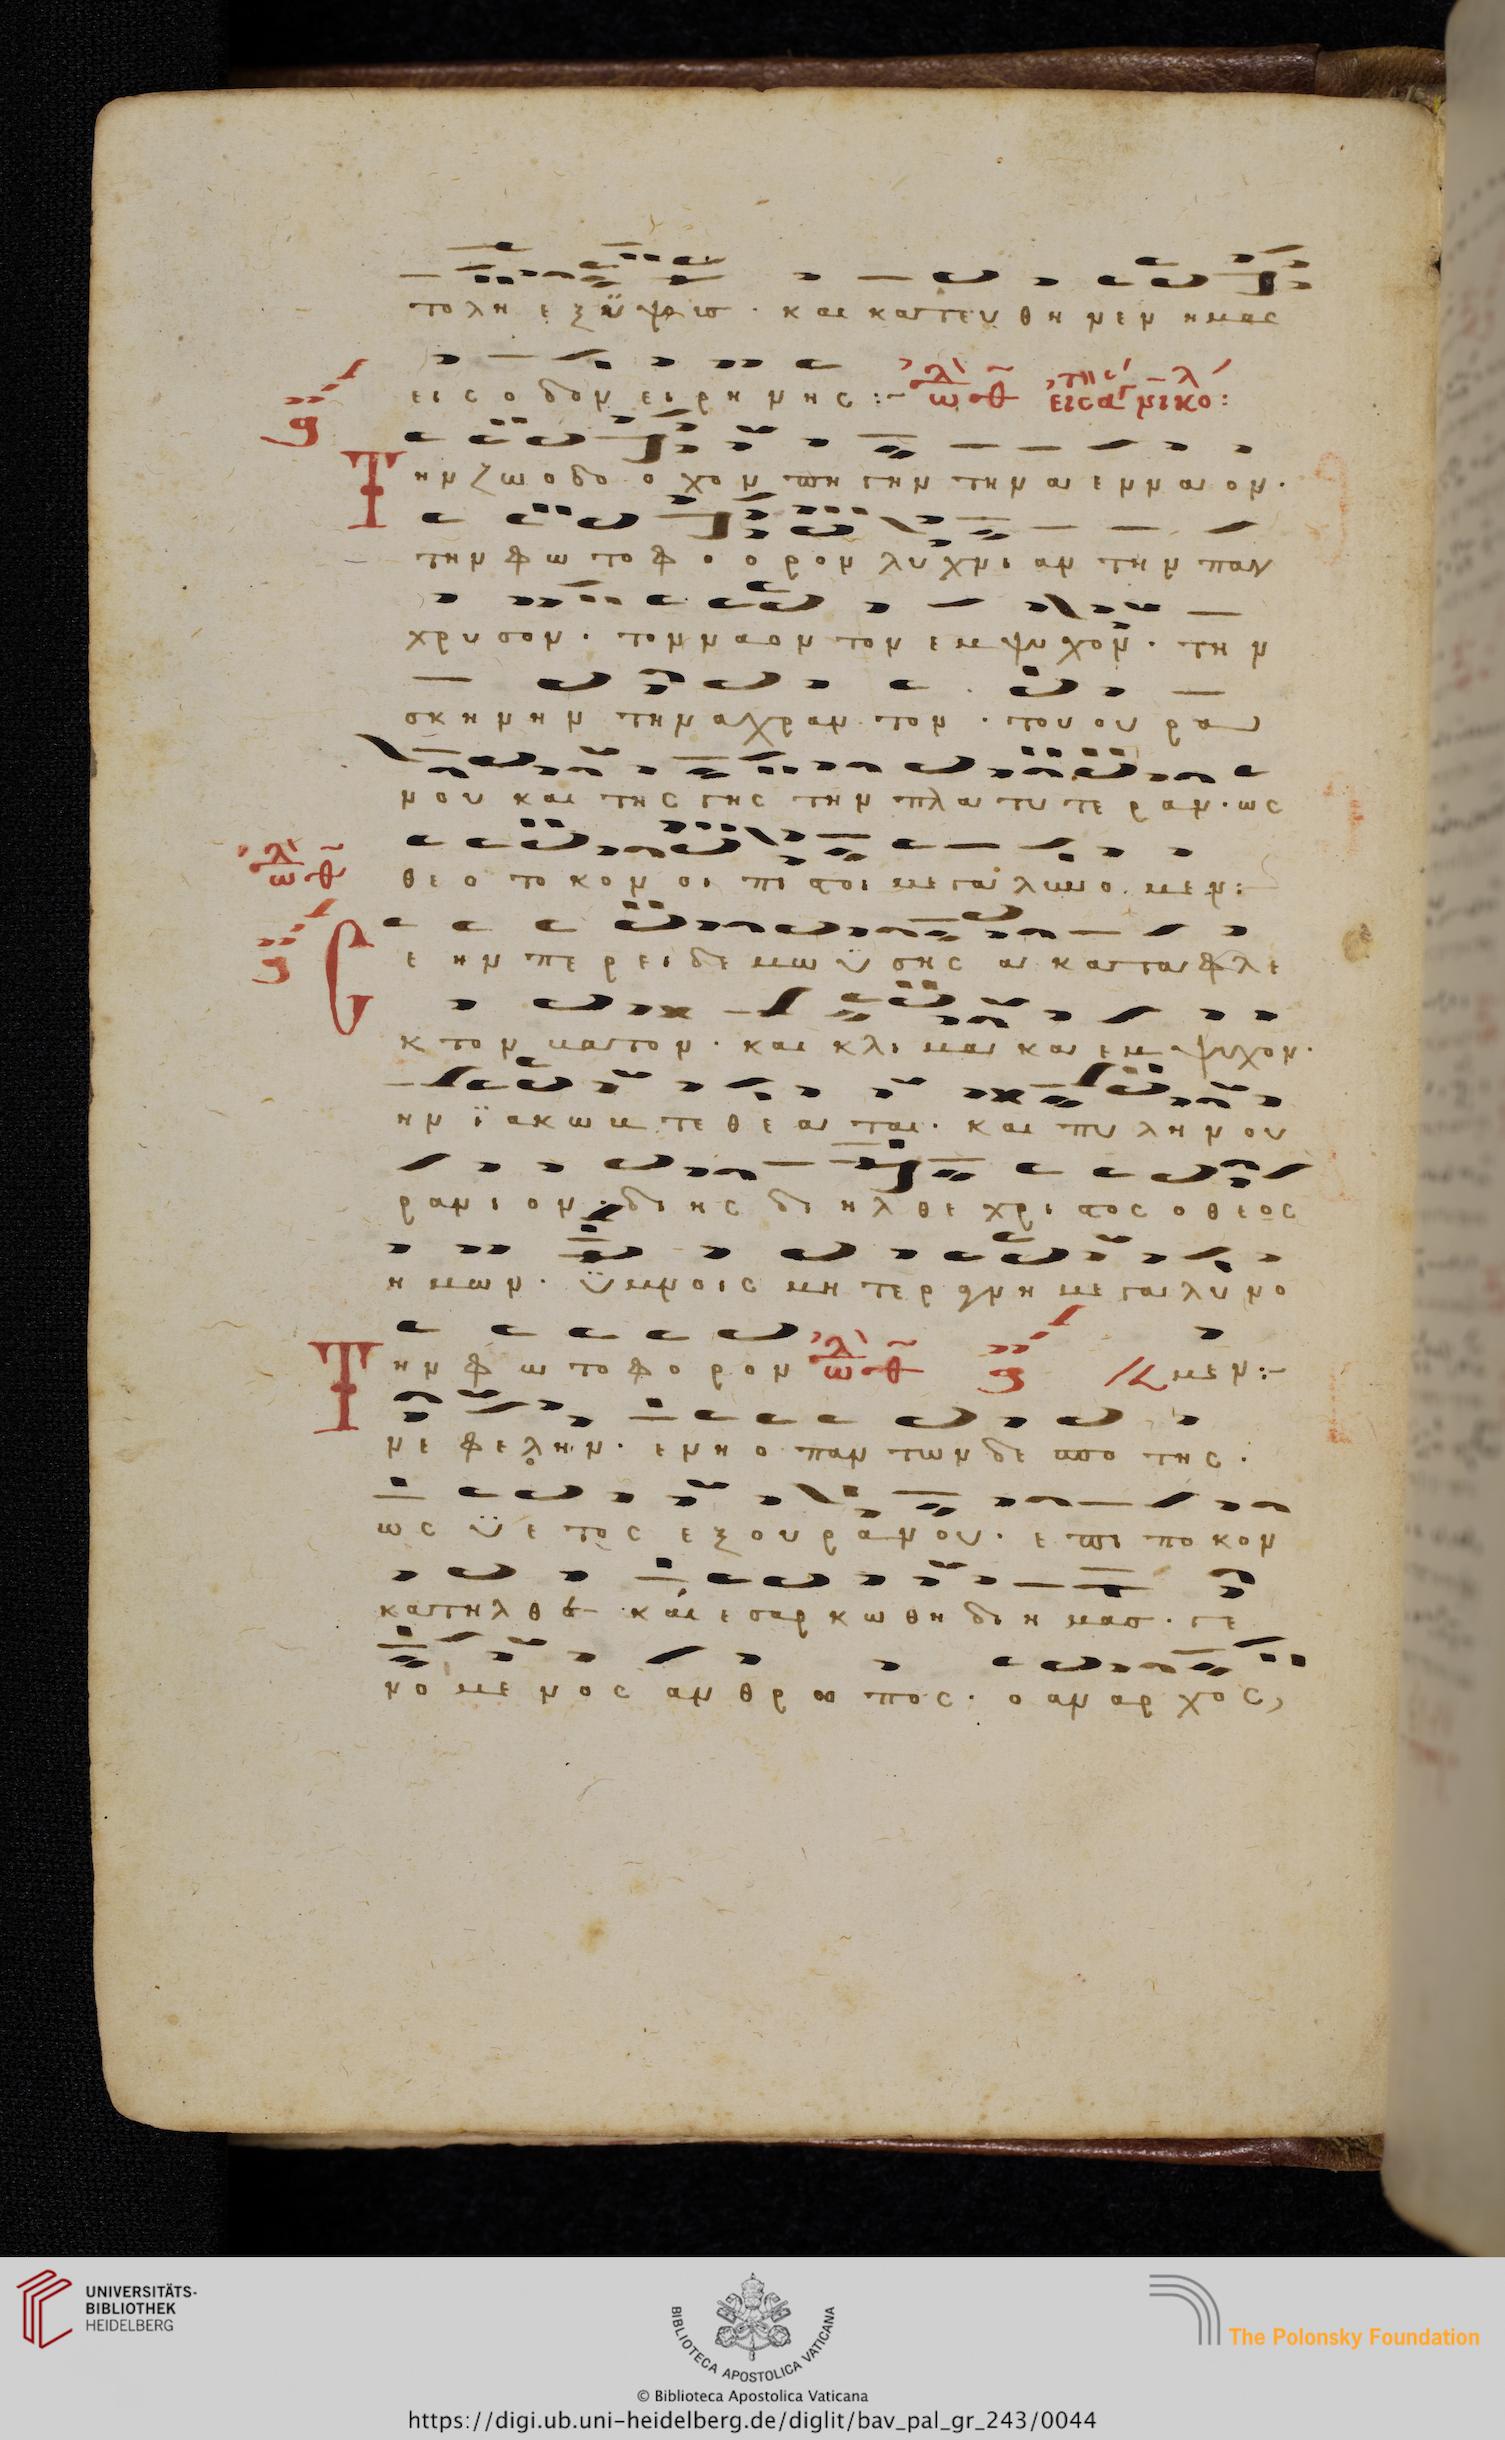 τολη εξ ϋψισ · και κατευθη νεν ημας
εις οδον ειρηνης :-
Την ζωοδο ο χον πη γην την αενναον ·
την φωτοφ ο ορον λυχνιαν την παν
χρυσον · τον ναον τον εμψυχον · την
σκηνην την αχραν τον · του ου ρα
νου και της γης την πλατυτεραν · ως
θεοτοκον οι πιστοι μεγαλυνο μεν :
Ε ην περ ειδε μωϋσης ακαταφλε
κτον βατον · και κλιμακα εμψυχον ·
ην ϊακωβ τεθεαται · και πυλην ου
ρανιον · δι ης διηλθε χριστος ο θεος
ημων · ϋμνοις μητερ αγνη μεγαλυνο
μεν :-
Την φωτοφορον
νεφελην · εν η ο παν των δεσπο της ·
ως ϋετος εξ ουρανου · επι ποκον
κατηλθε και εσαρκωθη δι ημασ · γε
νομενος ανθρωπος · ο αναρχος,
UNIVERSITÄTS-
BIBLIOTHEK
HEIDELBERG
BIBLIOTECA APOSTOLICA VATICANA
The Polonsky Foundation
© Biblioteca Apostolica Vaticana
https://digi.ub.uni-heidelberg.de/diglit/bav_pal_gr_243/0044